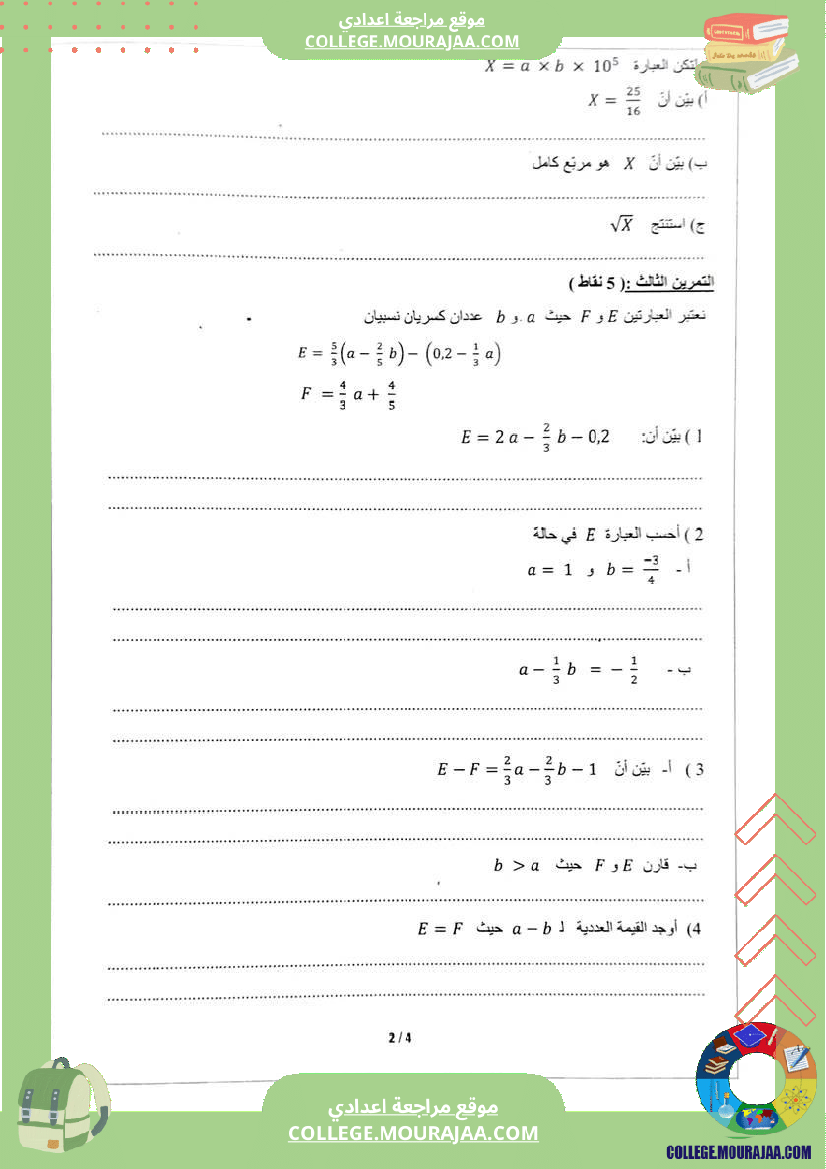 موقع مراجعة اعدادي
COLLEGE.MOURAJAA.COM
لتكن العبارة X = a × b × 10⁵
أ) بيّن أنّ X = 25/16
ب) بيّن أنّ X هو مربّع كامل
ج) استنتج √X
التمرين الثالث :( 5 نقاط )
نعتبر العبارتين E و F حيث a و b عددان كسريان نسبيان
E = 5/3 (a − 2/5 b) − (0,2 − 1/3 a)
F = 4/3 a + 4/5
1 ) بيّن أن: E = 2 a − 2/3 b − 0,2
2 ) أحسب العبارة E في حالة
أ - b = −3/4 و a = 1
ب - a − 1/3 b = − 1/2
3 ) أ- بيّن أنّ E − F = 2/3 a − 2/3 b − 1
ب- قارن E و F حيث b > a
4) أوجد القيمة العددية لـ a − b حيث E = F
2 / 4
موقع مراجعة اعدادي
COLLEGE.MOURAJAA.COM
COLLEGE.MOURAJAA.COM